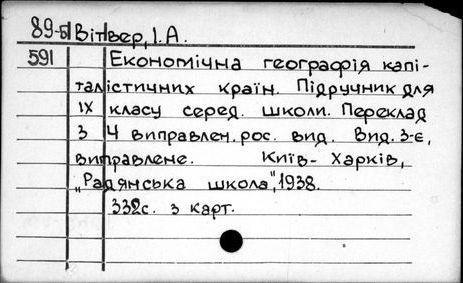 89-б Вітвер, І.А.
591 Економічна географія капі-
талістичних країн. Підручник для
ІХ класу серед. школи. Переклад
з 4 виправлен. рос. вид. Вид. 3-є,
виправлене. Київ- Харків,
„Радянська школа", 1938.
332с. з карт.